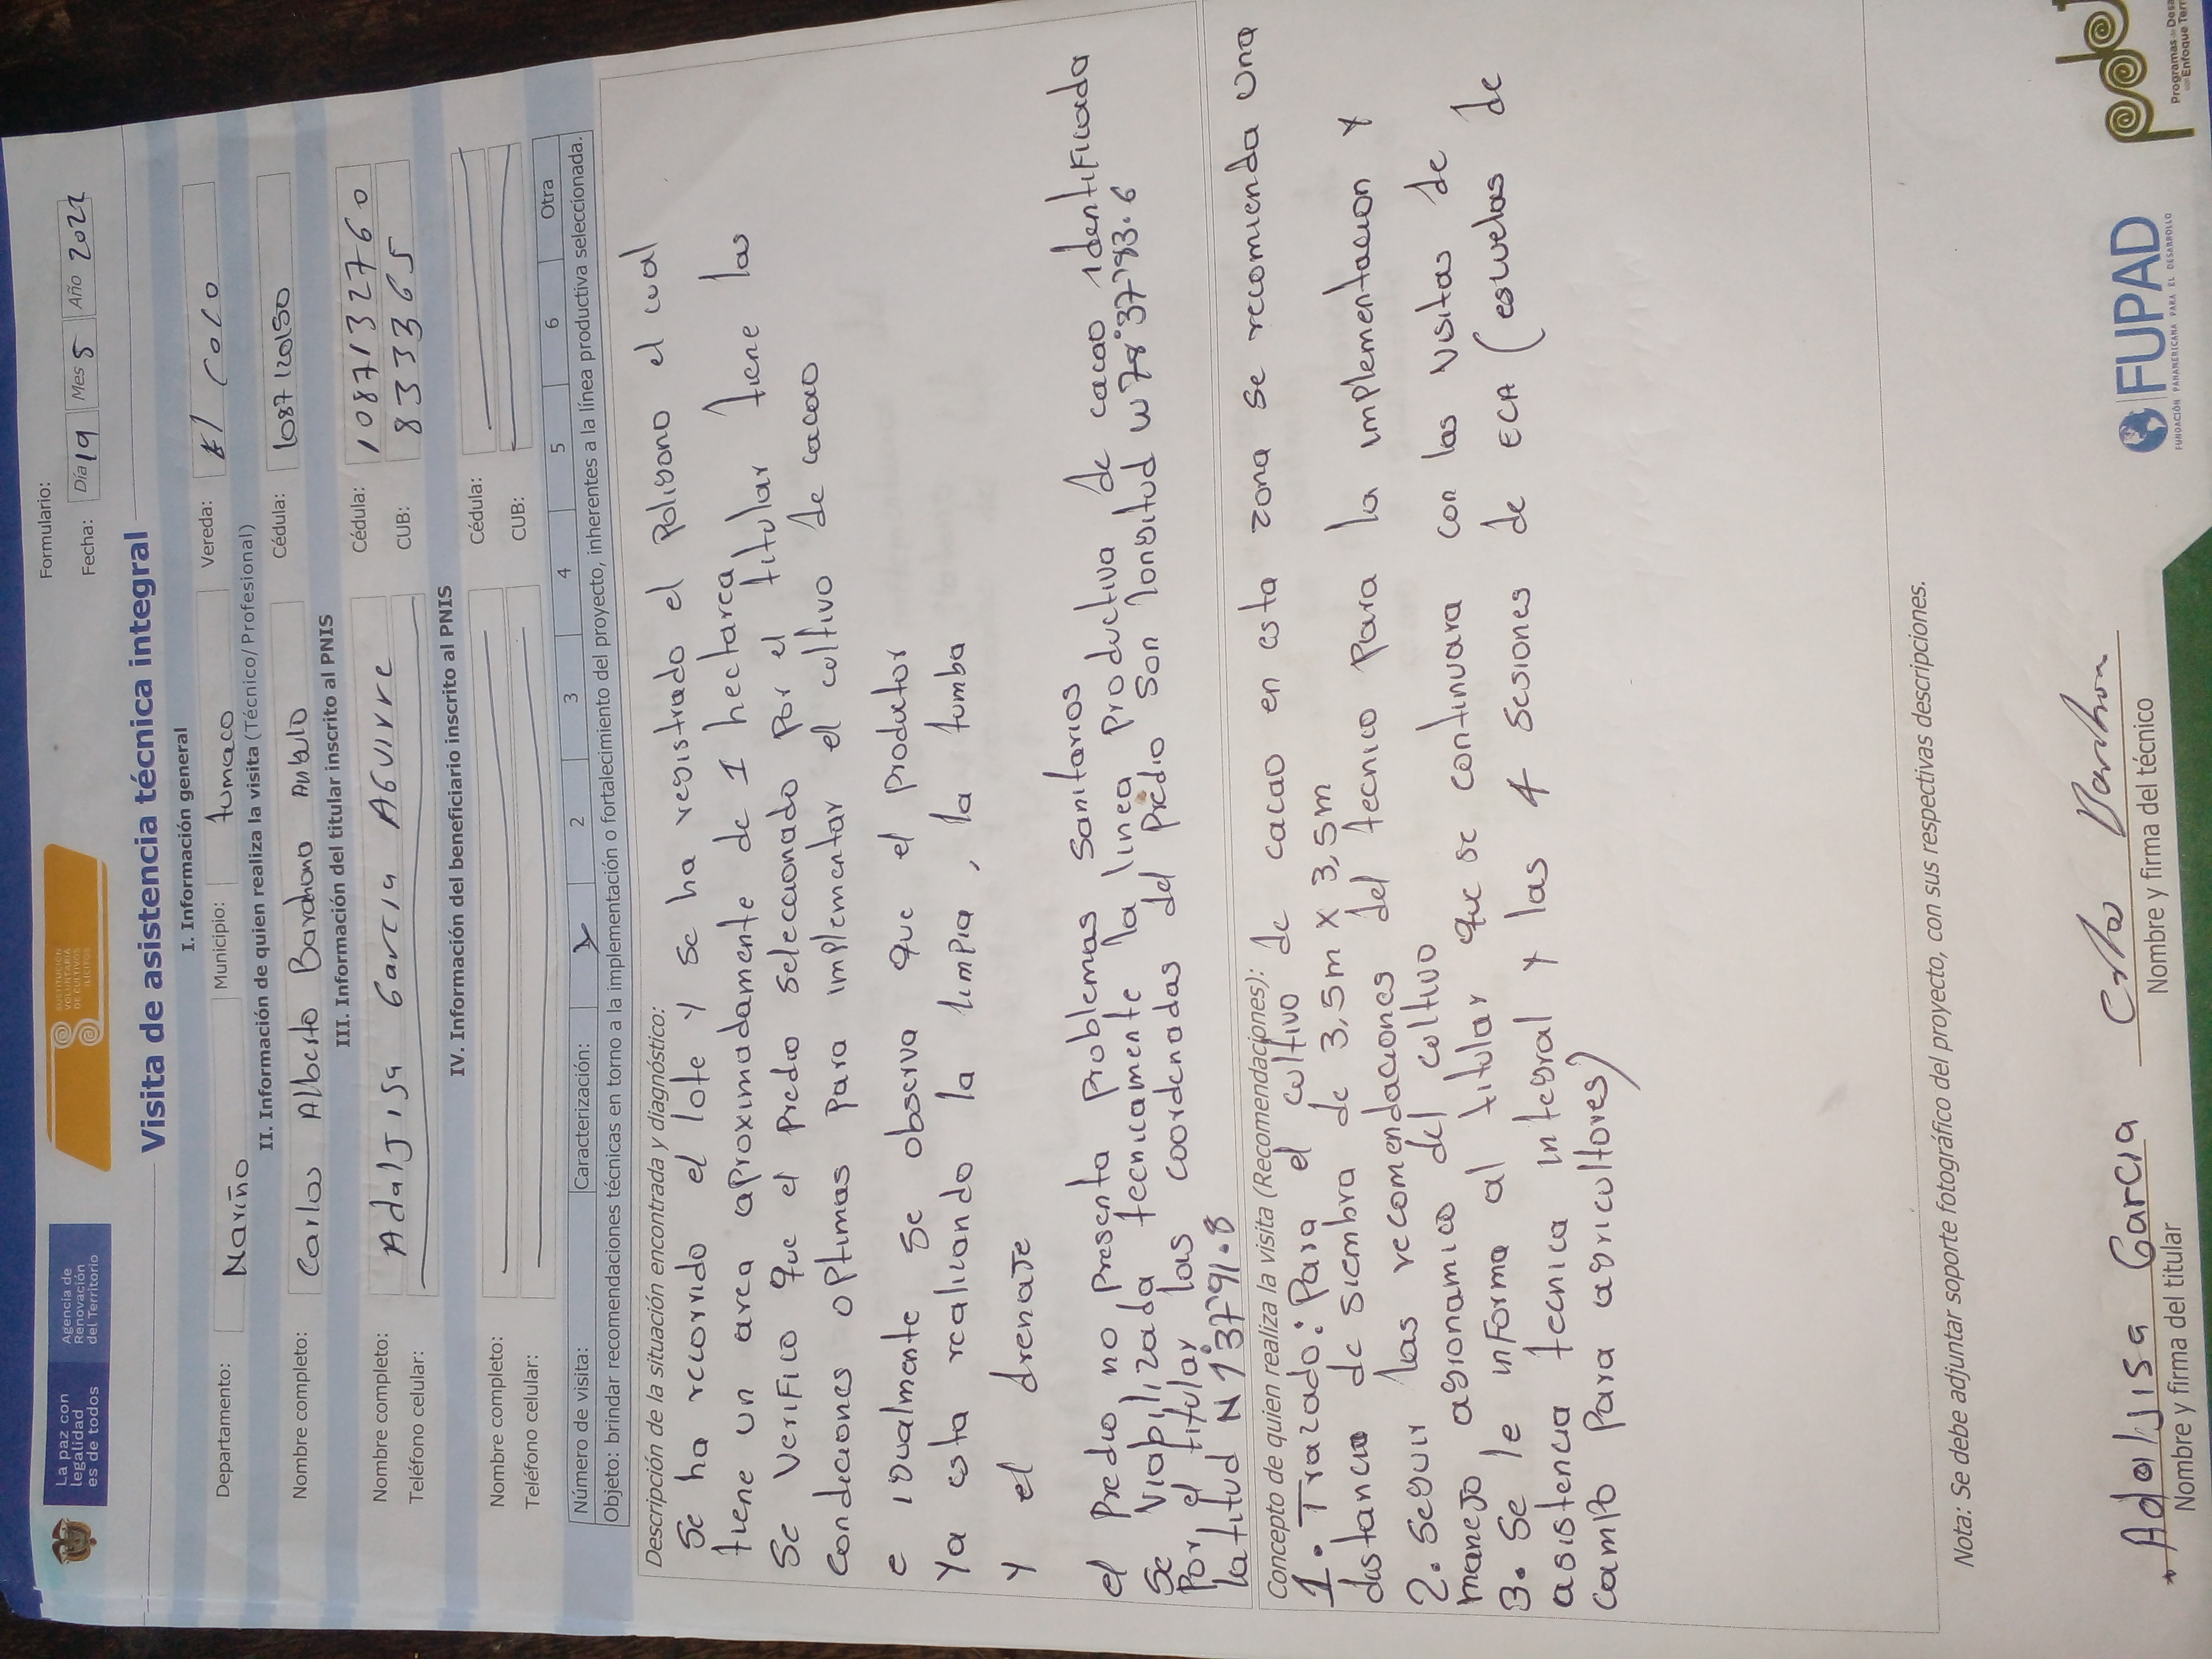 La paz con
legalidad
es de todos
Agencia de
Renovación
del Territorio
SUSTITUCIÓN
VOLUNTARIA
DE CULTIVOS
ILÍCITOS
Formulario:
Fecha: Día 19 Mes 5 Año 2022
Visita de asistencia técnica integral
I. Información general
Departamento: Nariño Municipio: tumaco Vereda: El Coco
II. Información de quien realiza la visita (Técnico/Profesional)
Nombre completo: Carlos Alberto Barahona Angulo Cédula: 1087120150
III. Información del titular inscrito al PNIS
Nombre completo: Adaljisa Garcia Aguirre Cédula: 1087132760
Teléfono celular: CUB: 8333365
IV. Información del beneficiario inscrito al PNIS
Nombre completo: Cédula:
Teléfono celular: CUB:
Número de visita: Caracterización: X 2 3 4 5 6 Otra
Objeto: brindar recomendaciones técnicas en torno a la implementación o fortalecimiento del proyecto, inherentes a la línea productiva seleccionada.
Descripción de la situación encontrada y diagnóstico:
Se ha recorrido el lote y se ha registrado el Poligono el cual
tiene un area aproximadamente de 1 hectarea
Se verifico que el predio seleccionado por el titular tiene las
condiciones optimas para implementar el cultivo de cacao
e igualmente se observa que el productor
ya esta realizando la limpia, la tumba
y el drenaje
el predio no presenta problemas sanitarios
Se viabilizada tecnicamente la linea productiva de cacao identificada
por el titular las coordenadas del predio son longitud W78°37'783.6
latitud N 1°37'791.8
Concepto de quien realiza la visita (Recomendaciones):
1. Trazado: Para el cultivo de cacao en esta zona se recomienda una
distancia de siembra de 3,5m x 3,5m
2. Seguir las recomendaciones del tecnico para la implementacion y
manejo agronamico del cultivo
3. Se le informa al titular que se continuara con las visitas de
asistencia tecnica integral y las 4 sesiones de ECA (escuelas de
campo para agricultores)
Nota: Se debe adjuntar soporte fotográfico del proyecto, con sus respectivas descripciones.
Adaljisa Garcia
Nombre y firma del titular
Nombre y firma del técnico
FUPAD
FUNDACIÓN PANAMERICANA PARA EL DESARROLLO